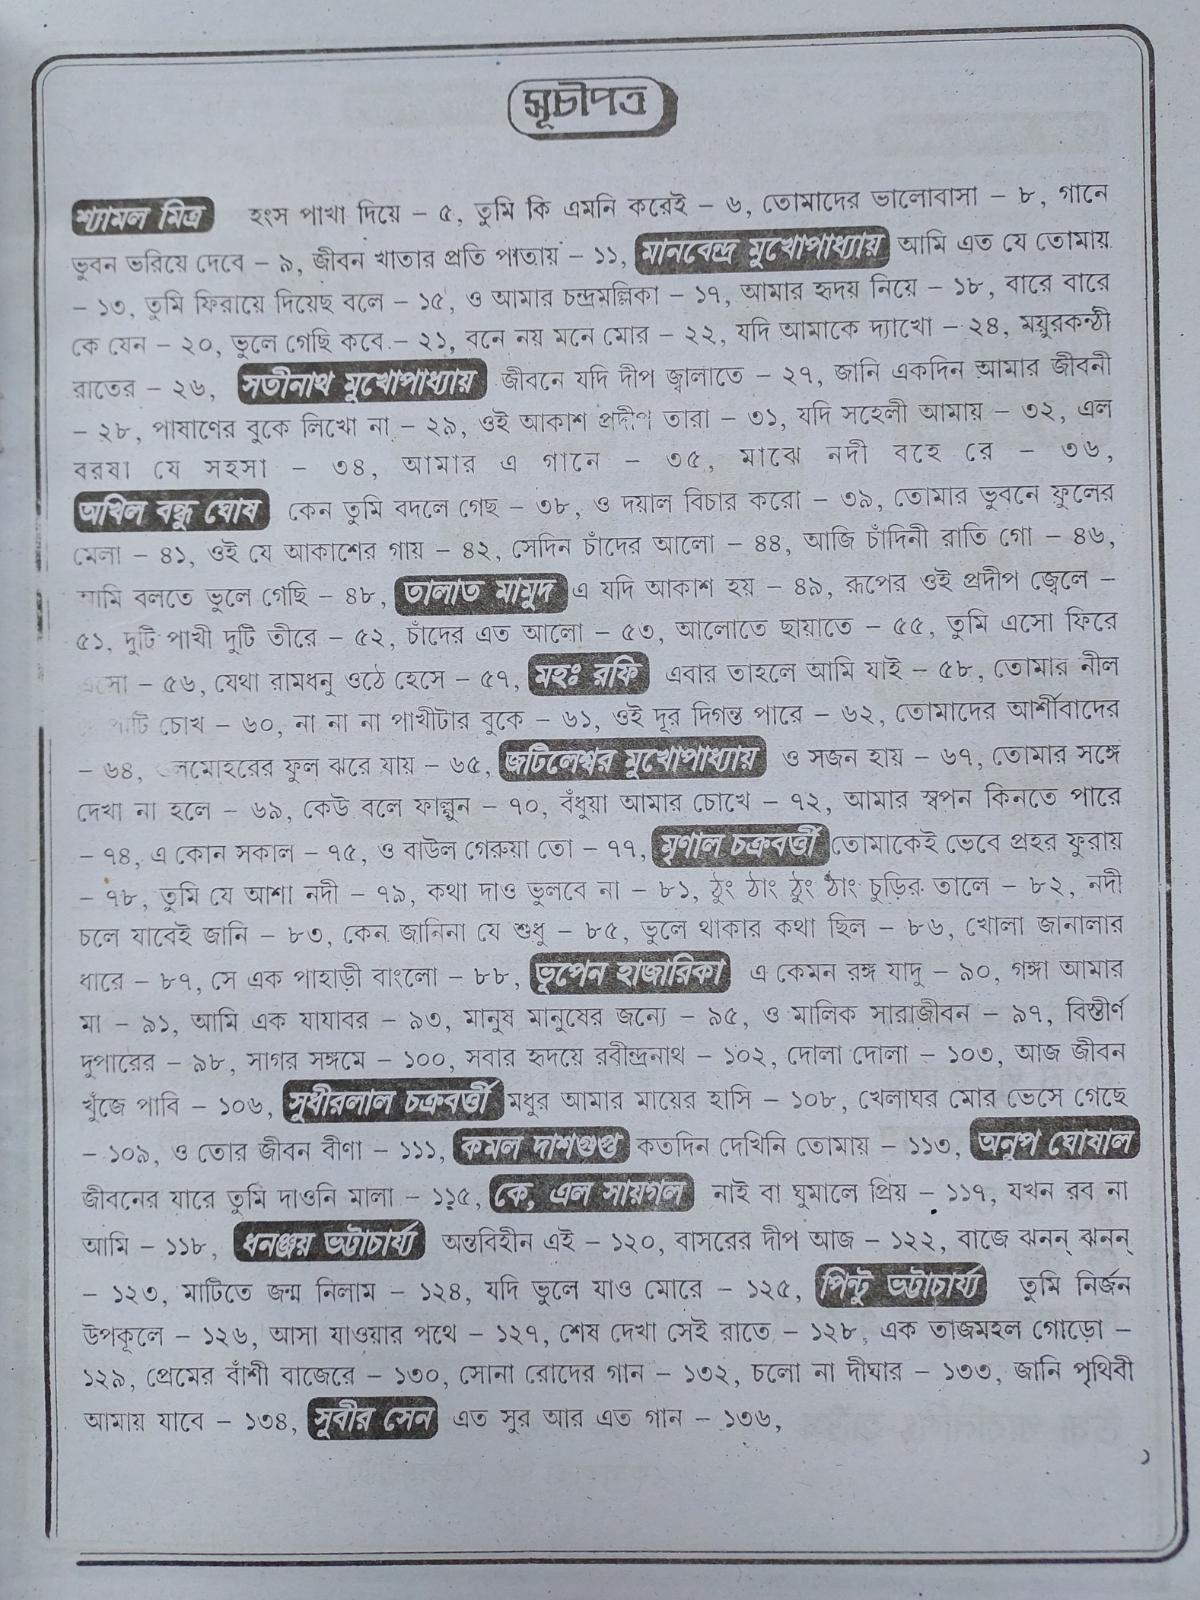 সূচীপত্র
শ্যামল মিত্র হংস পাখা দিয়ে – ৫, তুমি কি এমনি করেই – ৬, তোমাদের ভালোবাসা – ৮, গানে
ভুবন ভরিয়ে দেবে – ৯, জীবন খাতার প্রতি পাতায় – ১১, মানবেন্দ্র মুখোপাধ্যায় আমি এত যে তোমায়
– ১৩, তুমি ফিরায়ে দিয়েছ বলে – ১৫, ও আমার চন্দ্রমল্লিকা – ১৭, আমার হৃদয় নিয়ে – ১৮, বারে বারে
কে যেন – ২০, ভুলে গেছি কবে – ২১, বনে নয় মনে মোর – ২২, যদি আমাকে দ্যাখো – ২৪, ময়ুরকন্ঠী
রাতের – ২৬, সতীনাথ মুখোপাধ্যায় জীবনে যদি দীপ জ্বালাতে – ২৭, জানি একদিন আমার জীবনী
– ২৮, পাষাণের বুকে লিখো না – ২৯, ওই আকাশ প্রদীপ তারা – ৩১, যদি সহেলী আমায় – ৩২, এল
বরষা যে সহসা – ৩৪, আমার এ গানে – ৩৫, মাঝে নদী বহে রে – ৩৬,
অখিল বন্ধু ঘোষ কেন তুমি বদলে গেছ – ৩৮, ও দয়াল বিচার করো – ৩৯, তোমার ভুবনে ফুলের
মেলা – ৪১, ওই যে আকাশের গায় – ৪২, সেদিন চাঁদের আলো – ৪৪, আজি চাঁদিনী রাতি গো – ৪৬,
বলতে ভুলে গেছি – ৪৮, তালাত মামুদ এ যদি আকাশ হয় – ৪৯, রূপের ওই প্রদীপ জ্বেলে –
৫১, দুটি পাখী দুটি তীরে – ৫২, চাঁদের এত আলো – ৫৩, আলোতে ছায়াতে – ৫৫, তুমি এসো ফিরে
এসো – ৫৬, যেথা রামধনু ওঠে হেসে – ৫৭, মহঃ রফি এবার তাহলে আমি যাই – ৫৮, তোমার নীল
চোখ – ৬০, না না না পাখীটার বুকে – ৬১, ওই দূর দিগন্ত পারে – ৬২, তোমাদের আর্শীবাদের
– ৬৪, ফুল ঝরে যায় – ৬৫, জটিলেশ্বর মুখোপাধ্যায় ও সজন হায় – ৬৭, তোমার সঙ্গে
দেখা না হলে – ৬৯, কেউ বলে ফাল্গুন – ৭০, বঁধুয়া আমার চোখে – ৭২, আমার স্বপন কিনতে পারে
– ৭৪, এ কোন সকাল – ৭৫, ও বাউল গেরুয়া তো – ৭৭, মৃণাল চক্রবর্ত্তী তোমাকেই ভেবে প্রহর ফুরায়
– ৭৮, তুমি যে আশা নদী – ৭৯, কথা দাও ভুলবে না – ৮১, ঠুং ঠাং ঠুং ঠাং চুড়ির তালে – ৮২, নদী
চলে যাবেই জানি – ৮৩, কেন জানিনা যে শুধু – ৮৫, ভুলে থাকার কথা ছিল – ৮৬, খোলা জানালার
ধারে – ৮৭, সে এক পাহাড়ী বাংলো – ৮৮, ভূপেন হাজারিকা এ কেমন রঙ্গ যাদু – ৯০, গঙ্গা আমার
মা – ৯১, আমি এক যাযাবর – ৯৩, মানুষ মানুষের জন্যে – ৯৫, ও মালিক সারাজীবন – ৯৭, বিস্তীর্ণ
দুপারের – ৯৮, সাগর সঙ্গমে – ১০০, সবার হৃদয়ে রবীন্দ্রনাথ – ১০২, দোলা দোলা – ১০৩, আজ জীবন
খুঁজে পাবি – ১০৬, সুধীরলাল চক্রবর্ত্তী মধুর আমার মায়ের হাসি – ১০৮, খেলাঘর মোর ভেসে গেছে
– ১০৯, ও তোর জীবন বীণা – ১১১, কমল দাশগুপ্ত কতদিন দেখিনি তোমায় – ১১৩, অনুপ ঘোষাল
জীবনের যারে তুমি দাওনি মালা – ১১৫, কে, এল সায়গল নাই বা ঘুমালে প্রিয় – ১১৭, যখন রব না
আমি – ১১৮, ধনঞ্জয় ভট্টাচার্য্য অন্তবিহীন এই – ১২০, বাসরের দীপ আজ – ১২২, বাজে ঝনন্ ঝনন্
– ১২৩, মাটিতে জন্ম নিলাম – ১২৪, যদি ভুলে যাও মোরে – ১২৫, পিন্টু ভট্টাচার্য্য তুমি নির্জন
উপকূলে – ১২৬, আসা যাওয়ার পথে – ১২৭, শেষ দেখা সেই রাতে – ১২৮, এক তাজমহল গোড়ো –
১২৯, প্রেমের বাঁশী বাজেরে – ১৩০, সোনা রোদের গান – ১৩২, চলো না দীঘার – ১৩৩, জানি পৃথিবী
আমায় যাবে – ১৩৪, সুবীর সেন এত সুর আর এত গান – ১৩৬,